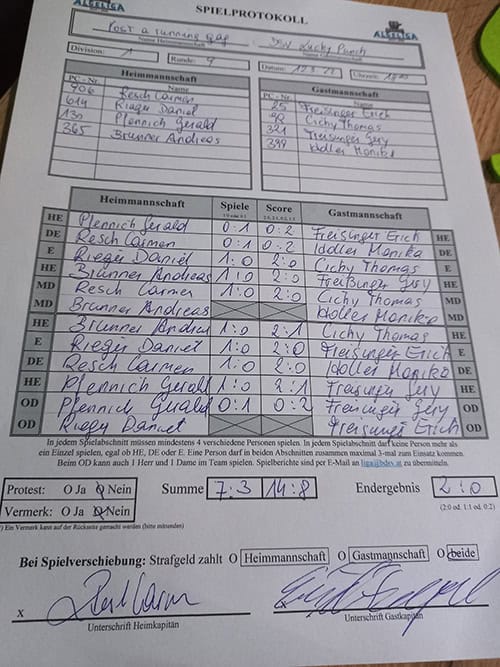 ALGELIGA SPIELPROTOKOLL ALGELIGA
Post a running gag : DSV Lucky Punch
Name Heimmannschaft Name Gastmannschaft
Division: 1 Runde: 9 Datum: Uhrzeit:
Heimmannschaft Gastmannschaft
PC - Nr. Name PC - Nr. Name
906 Resch Carmen 25 Freisinger Erich
614 Rieger Daniel 90 Cichy Thomas
130 Pfennich Gerald 321 Freisinger Gery
365 Brunner Andreas 399 Idoller Monika
Heimmannschaft Spiele Score Gastmannschaft
HE Pfennich Gerald 0:1 0:2 Freisinger Erich HE
DE Resch Carmen 0:1 0:2 Idoller Monika DE
E Rieger Daniel 1:0 2:0 Cichy Thomas E
HE Brunner Andreas 1:0 2:0 Freisinger Gery HE
MD Resch Carmen 1:0 2:0 Cichy Thomas MD
MD Brunner Andreas Idoller Monika MD
HE Brunner Andrea 1:0 2:1 Cichy Thomas HE
E Rieger Daniel 1:0 2:0 Freisinger Erich E
DE Resch Carmen 1:0 2:0 Idoller Monika DE
HE Pfennich Gerald 1:0 2:1 Freisinger Gery HE
OD Pfennich Gerald 0:1 0:2 Freisinger Gery OD
OD Rieger Daniel Freisinger Erich OD
In jedem Spielabschnitt müssen mindestens 4 verschiedene Personen spielen. In jedem Spielabschnitt darf keine Person mehr als
ein Einzel spielen, egal ob HE, DE oder E. Eine Person darf in beiden Abschnitten zusammen maximal 3-mal zum Einsatz kommen.
Beim OD kann auch 1 Herr und 1 Dame im Team spielen. Spielberichte sind per E-Mail an liga@bdsv.at zu übermitteln.
Protest: O Ja O Nein Summe 7:3 14:8 Endergebnis 2:0
Vermerk: O Ja O Nein (2:0 od. 1:1 od. 0:2)
*) Ein Vermerk kann auf der Rückseite gemacht werden (bitte mitsenden)
Bei Spielverschiebung: Strafgeld zahlt O Heimmannschaft O Gastmannschaft O beide
X
Unterschrift Heimkapitän Unterschrift Gastkapitän